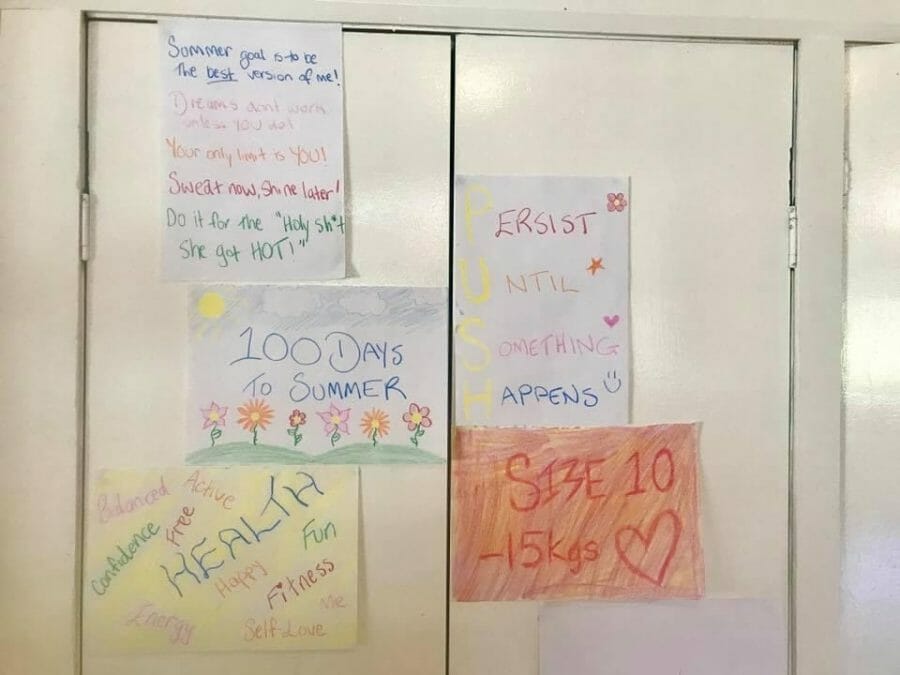 Summer goal is to be
The best version of me!
Dreams dont work
unless you do!
Your only limit is YOU!
Sweat now, shine later!
Do it for the "Holy sh*t
she got HOT!"
PERSIST
UNTIL
SOMETHING
HAPPENS
100 DAYS
TO SUMMER
SIZE 10
-15kgs
Balanced
Active
Confidence
Free
HEALTH
Fun
Happy
Fitness
Me
Energy
Self-Love